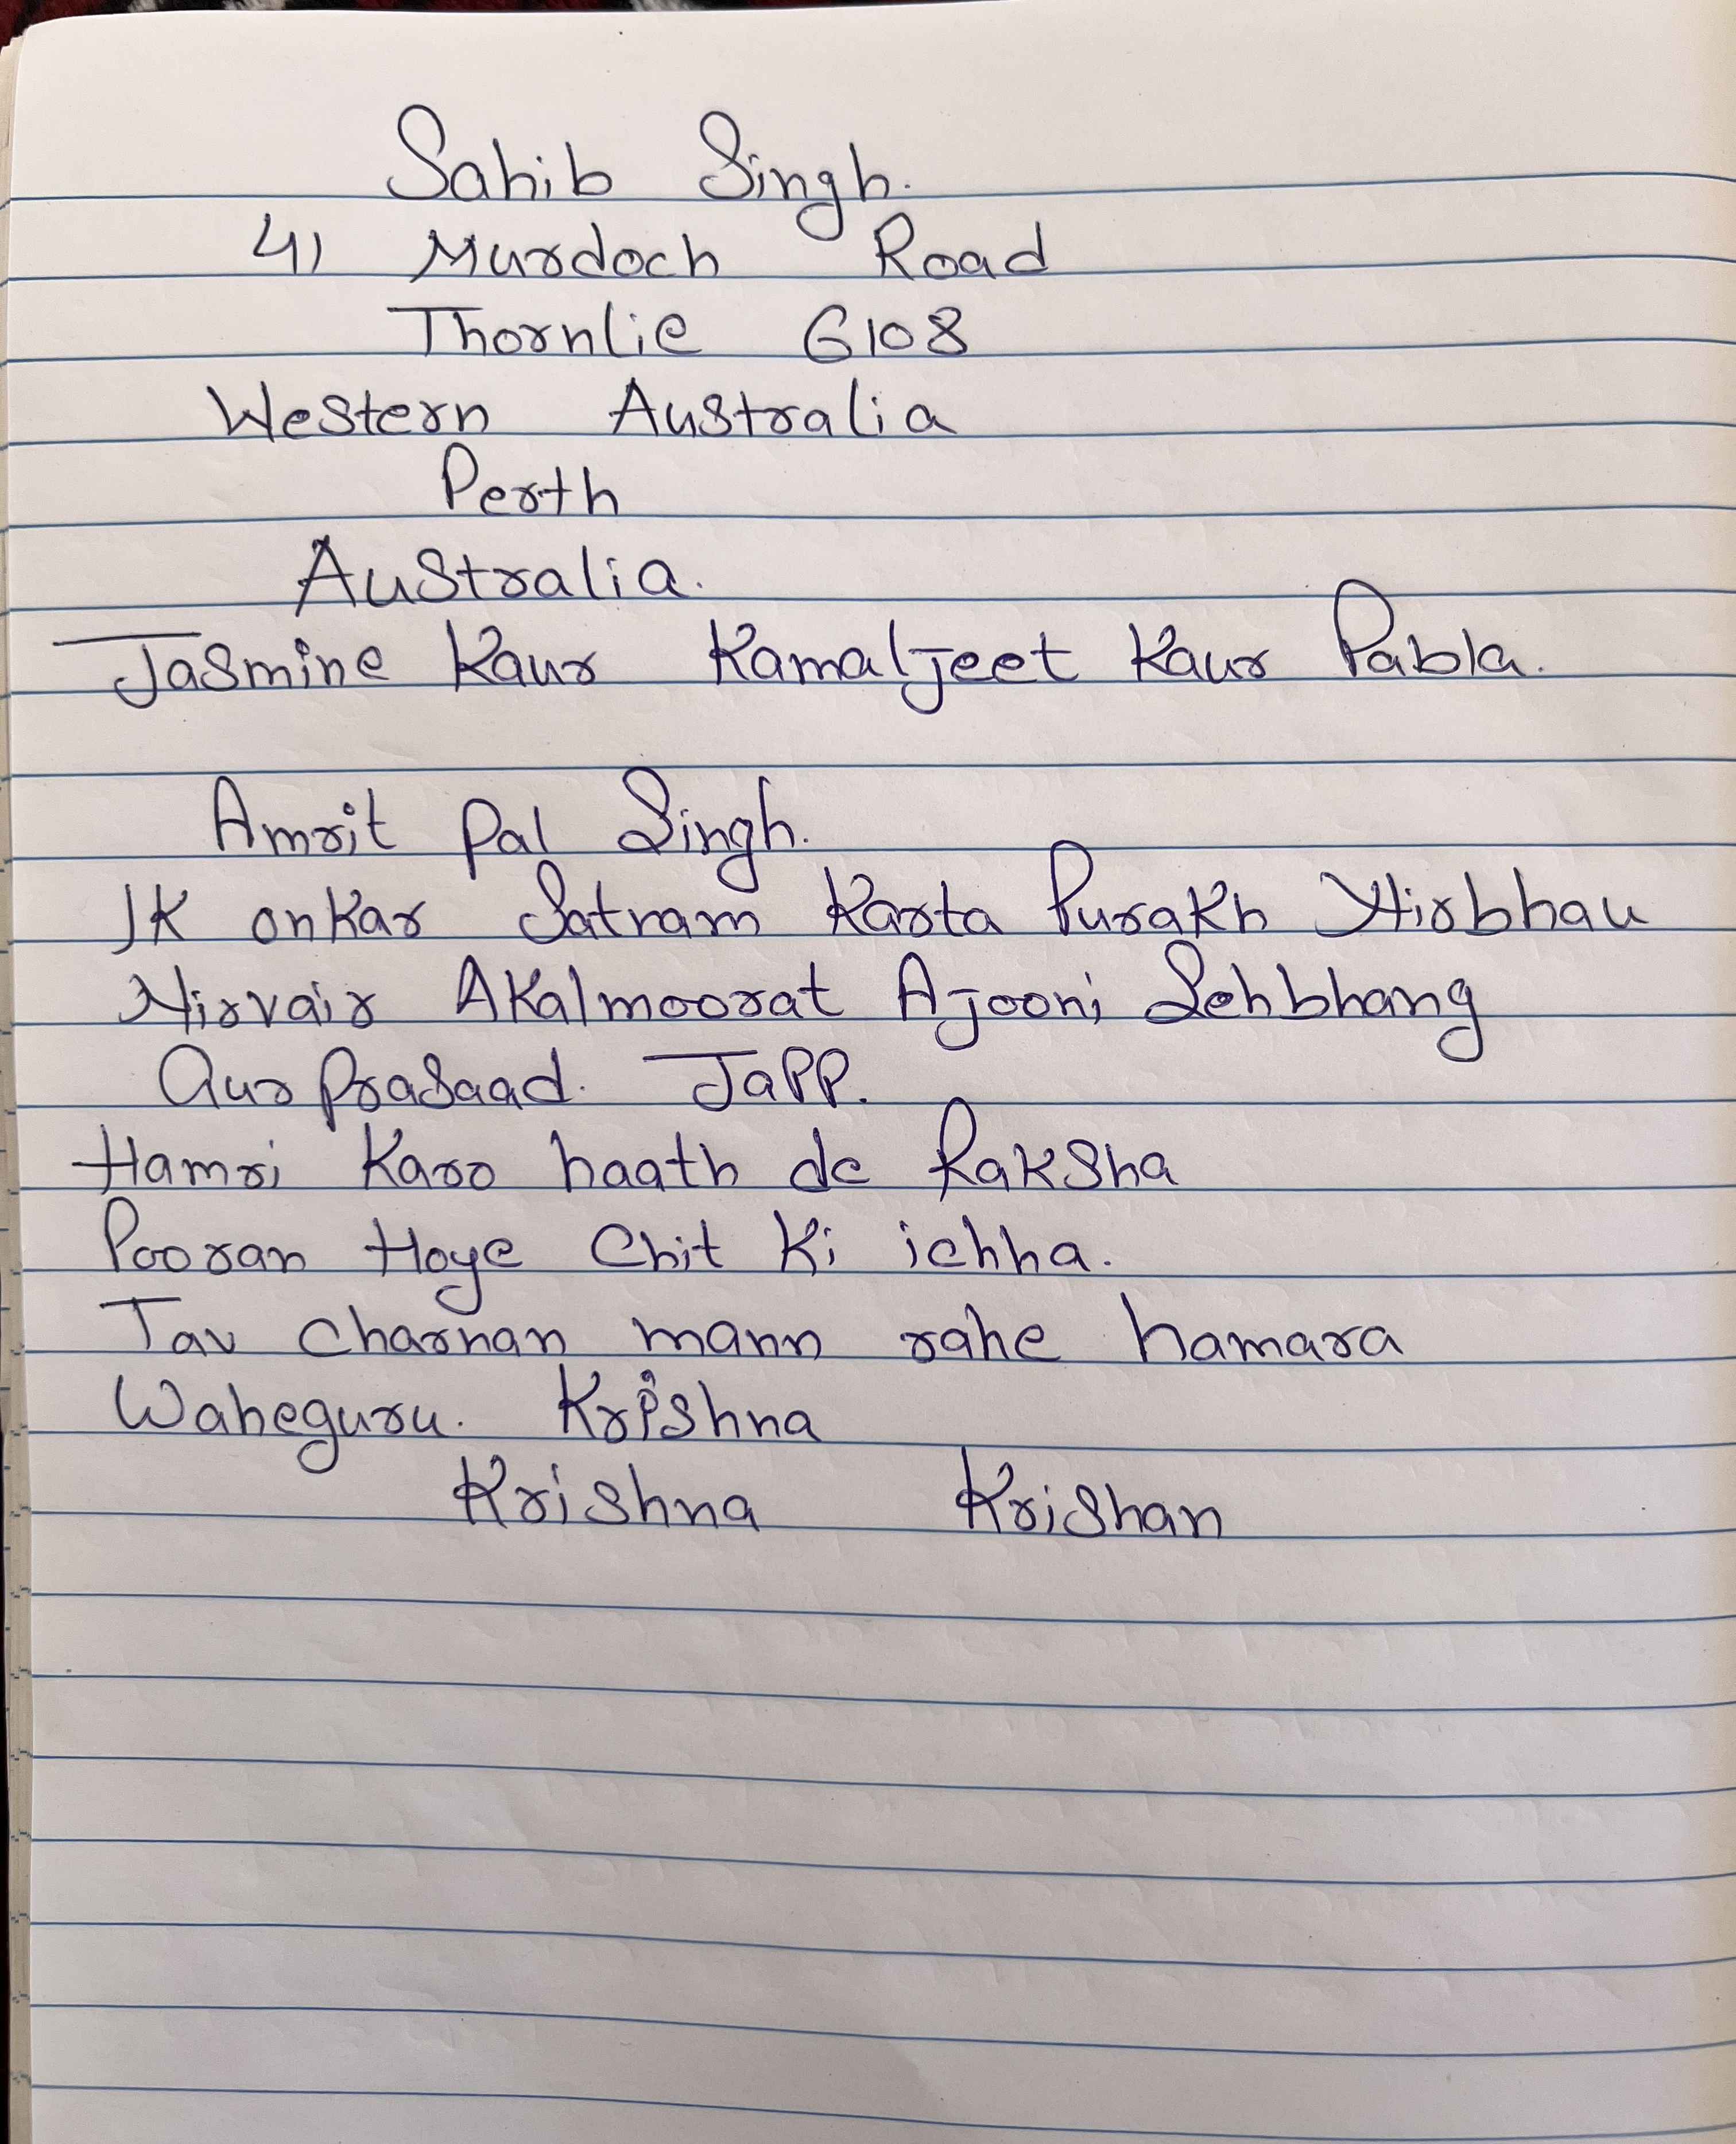 Sahib Singh.
41 Murdoch Road
Thornlie 6108
Western Australia
Perth
Australia.
Jasmine Kaur Kamaljeet Kaur Pabla.
Amrit Pal Singh.
IK onkar Satnam Karta Purakh Nirbhau
Nirvair Akalmoorat Ajooni Sehbhang
Gur prasaad. Japp.
Hamri Karo haath de Raksha
Pooran Hoye Chit Ki ichha.
Tav charnan mann rahe hamara
Waheguru. Krishna
Krishna Krishan